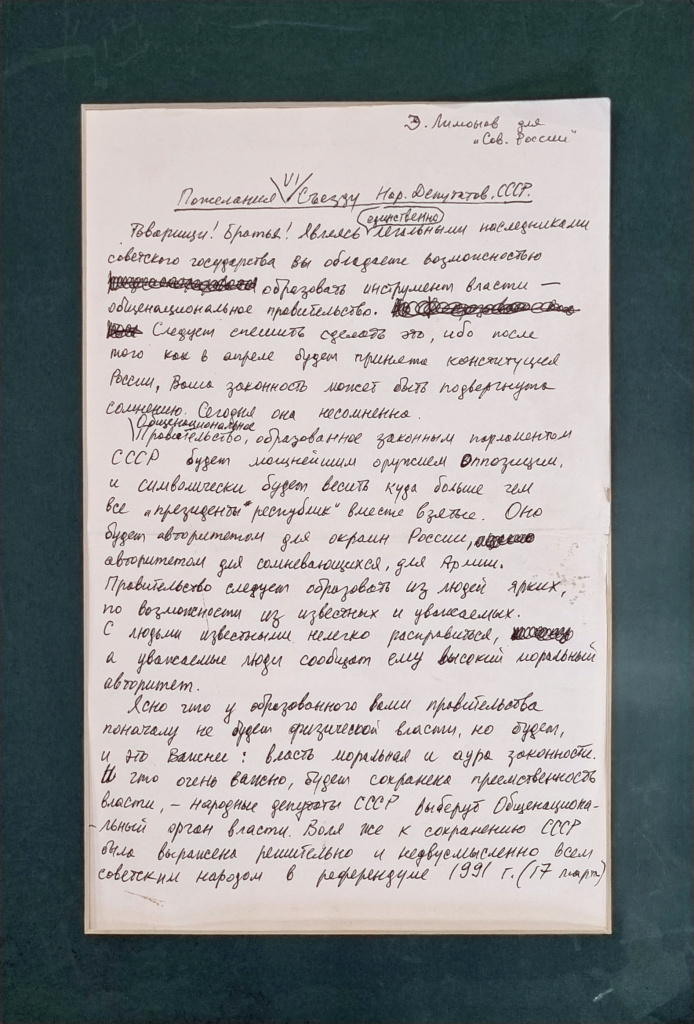 Э. Лимонов для
"Сов. России"
Пожелания VI Съезду Нар. Депутатов. СССР.
единственно
Товарищи! Братья! Являясь легальными последниками
советского государства вы обладаете возможностью
образовать инструмент власти —
общенациональное правительство.
Следует спешить сделать это, ибо после
того как в апреле будет принята конституция
России, Ваша законность может быть подвергнута
сомнению. Сегодня она несомненна.
Общенациональное
Правительство, образованное законным парламентом
СССР будет мощнейшим оружием оппозиции,
и символически будет весить куда больше чем
все „президенты" республик" вместе взятые. Оно
будет авторитетом для окраин России,
авторитетом для сомневающихся, для Армии.
Правительство следует образовать из людей ярких,
по возможности из известных и уважаемых.
С людьми известными нелегко расправиться,
а уважаемые люди сообщат ему высокий моральный
авторитет.
Ясно что у образованного вами правительства
поначалу не будет физической власти, но будет,
и это важнее: власть моральная и аура законности.
И что очень важно, будет сохранена преемственность
власти, – народные депутаты СССР выберут Общенациона-
-льный орган власти. Воля же к сохранению СССР
была выражена решительно и недвусмысленно всем
советским народом в референдуме 1991 г. (17 март)